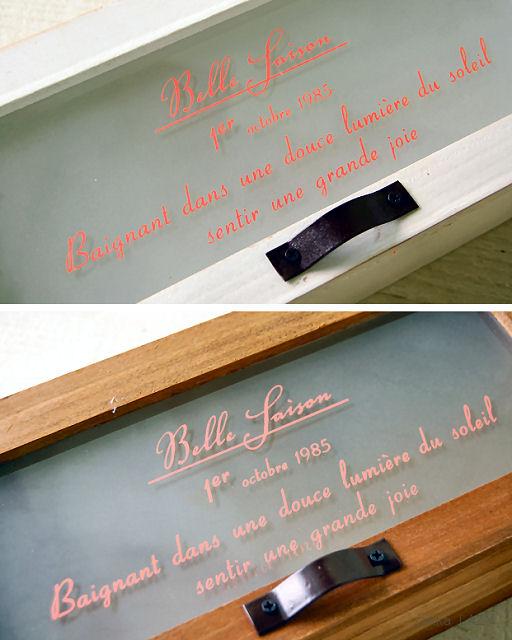 Belle Saison
1er octobre 1985
Baignant dans une douce lumière du soleil
sentir une grande joie
Belle Saison
1er octobre 1985
Baignant dans une douce lumière du soleil
sentir une grande joie